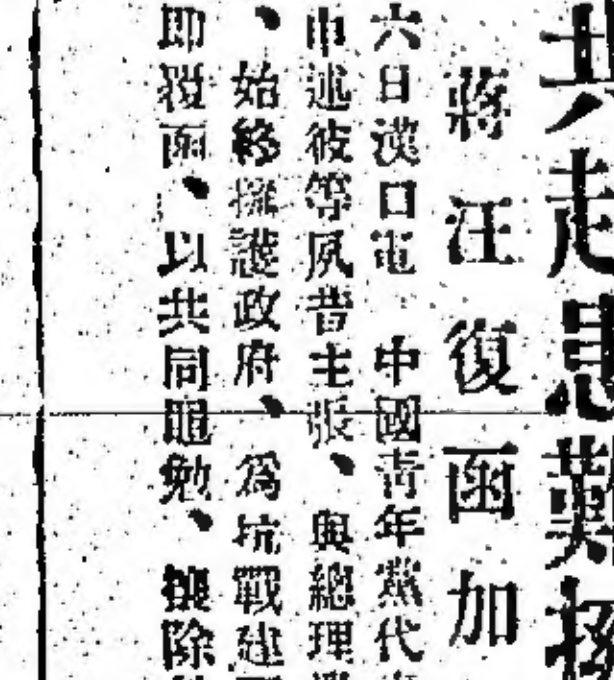 共走患難
蔣汪復函加
六日漢口電 中國青年黨代
申述彼等夙昔主張、與總理
、始終擁護政府、爲抗戰建
即覆函、以共同黽勉、掃除